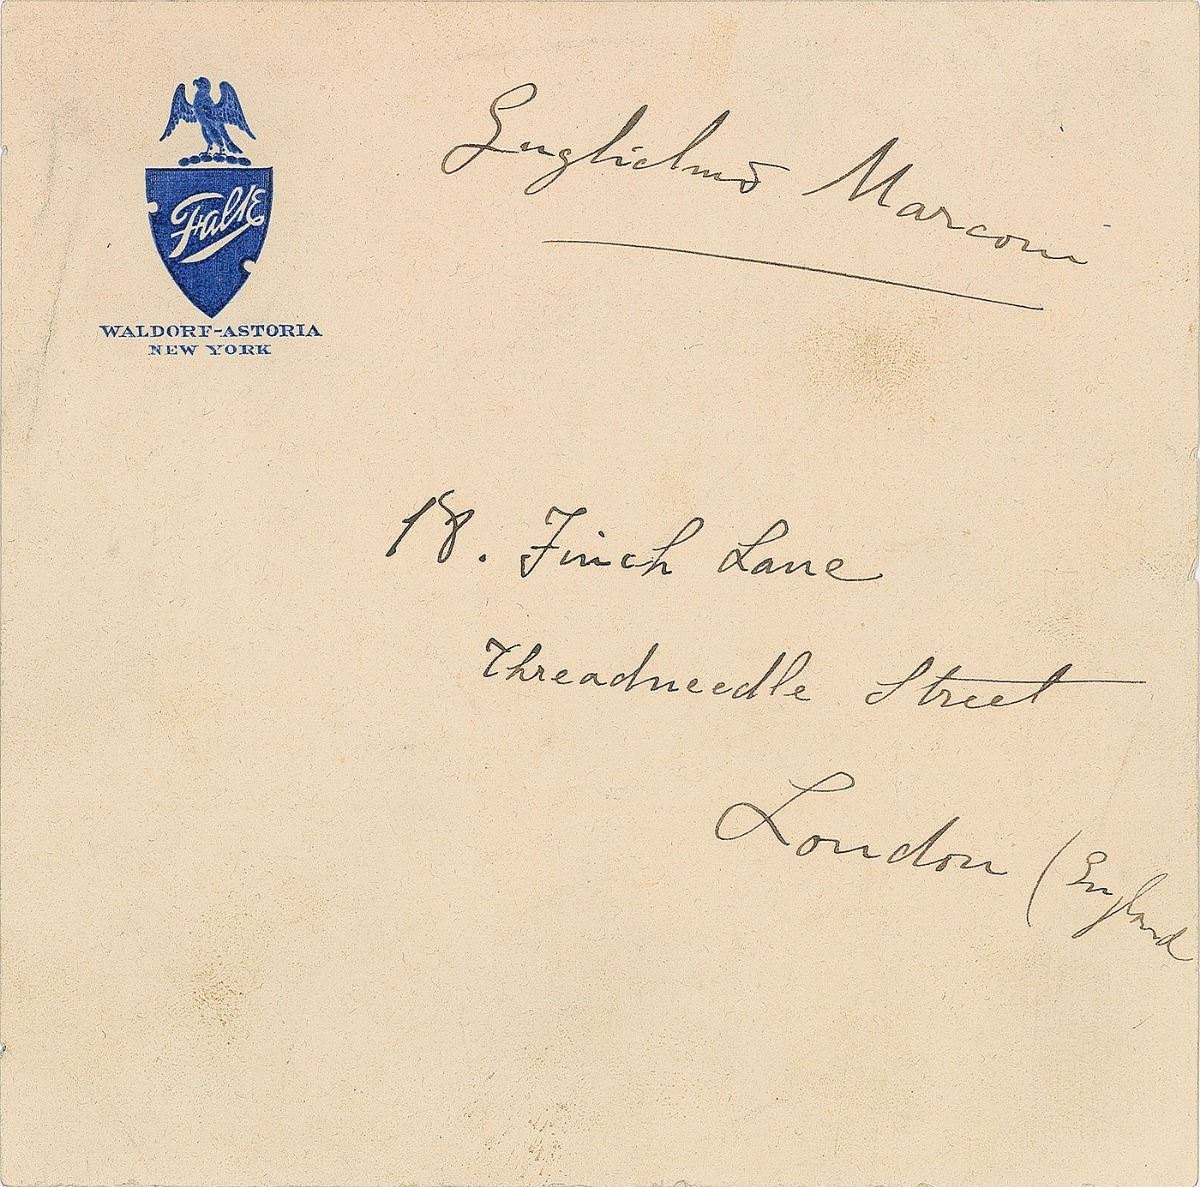 Guglielmo Marconi
WALDORF-ASTORIA
NEW YORK
18. Finch Lane
Threadneedle Street
London (England